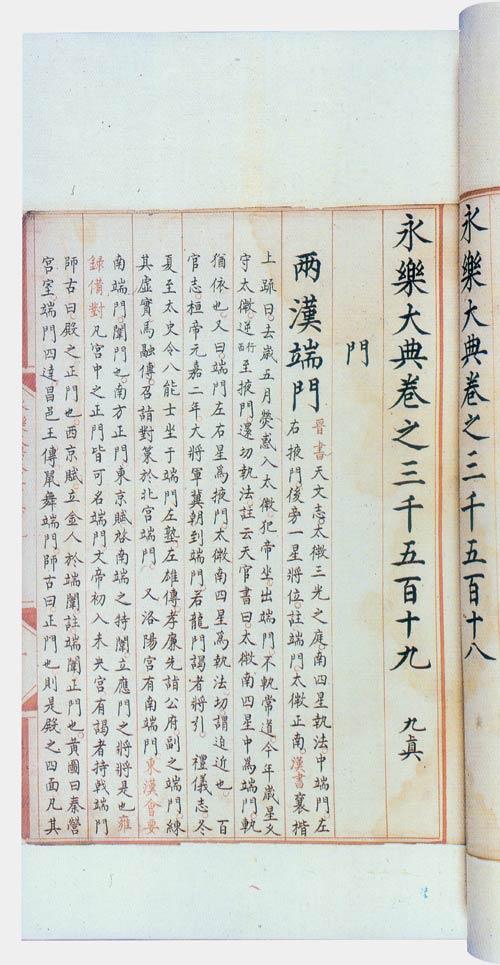 永樂大典卷之三千五百十八
永樂大典卷之三千五百十九 九真
門
兩漢端門
晉書天文志。太微三光之庭。南四星執法中。端門。左
右掖門。後旁一星將位。註端門。太微正南。漢書襄楷
上疏曰。去歲五月熒惑入太微。犯帝坐。出端門。不軌常道。今年歲星久
守太微。逆行西至掖門。還切執法。註云天官書曰。太微南四星中為端門。軌
猶依也。又曰端門左右星為掖門。太微南四星為執法。切謂迫近也。 百
官志。桓帝元嘉二年。大將軍冀朝到端門。若龍門謁者將引。 禮儀志。冬
夏至太史令八能士坐于端門左塾。左雄傳孝廉先詣公府。副之端門。練
其虛實。馬融傳。召詣對策於北宮端門。 又洛陽宮有南端門。東漢會要
南端門闈門也。南方正門東京賦。啓南端之特闈。立應門之將將是也。雍
錄備對凡宮中之正門。皆可名端門。文帝初入未央宮有謁者持戟端門
師古曰。殿之正門也。西京賦立金人於端闈。註端闈正門也。黃圖曰。秦營
宮室。端門四達。昌邑王傳舞端門。師古曰正門也。則是殿之四面。凡其